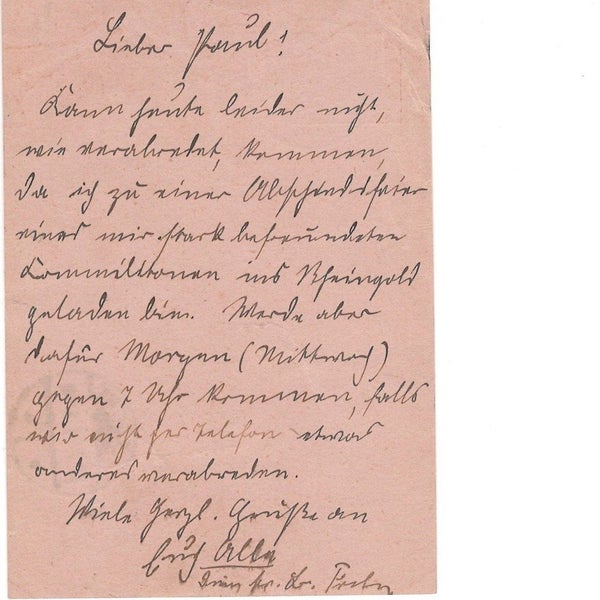 Lieber Paul!
Kann heute leider nicht,
wie verabredet, kommen,
da ich zu einer Abschiedsfeier
eines mir stark befreundeten
Kommilitonen ins Rheingold
geladen bin. Werde aber
dafür Morgen (Mittwoch)
gegen 7 Uhr kommen, falls
wir nicht per Telefon etwas
anderes verabreden.
Viele herzl. Grüße an
Euch Alle
Dein